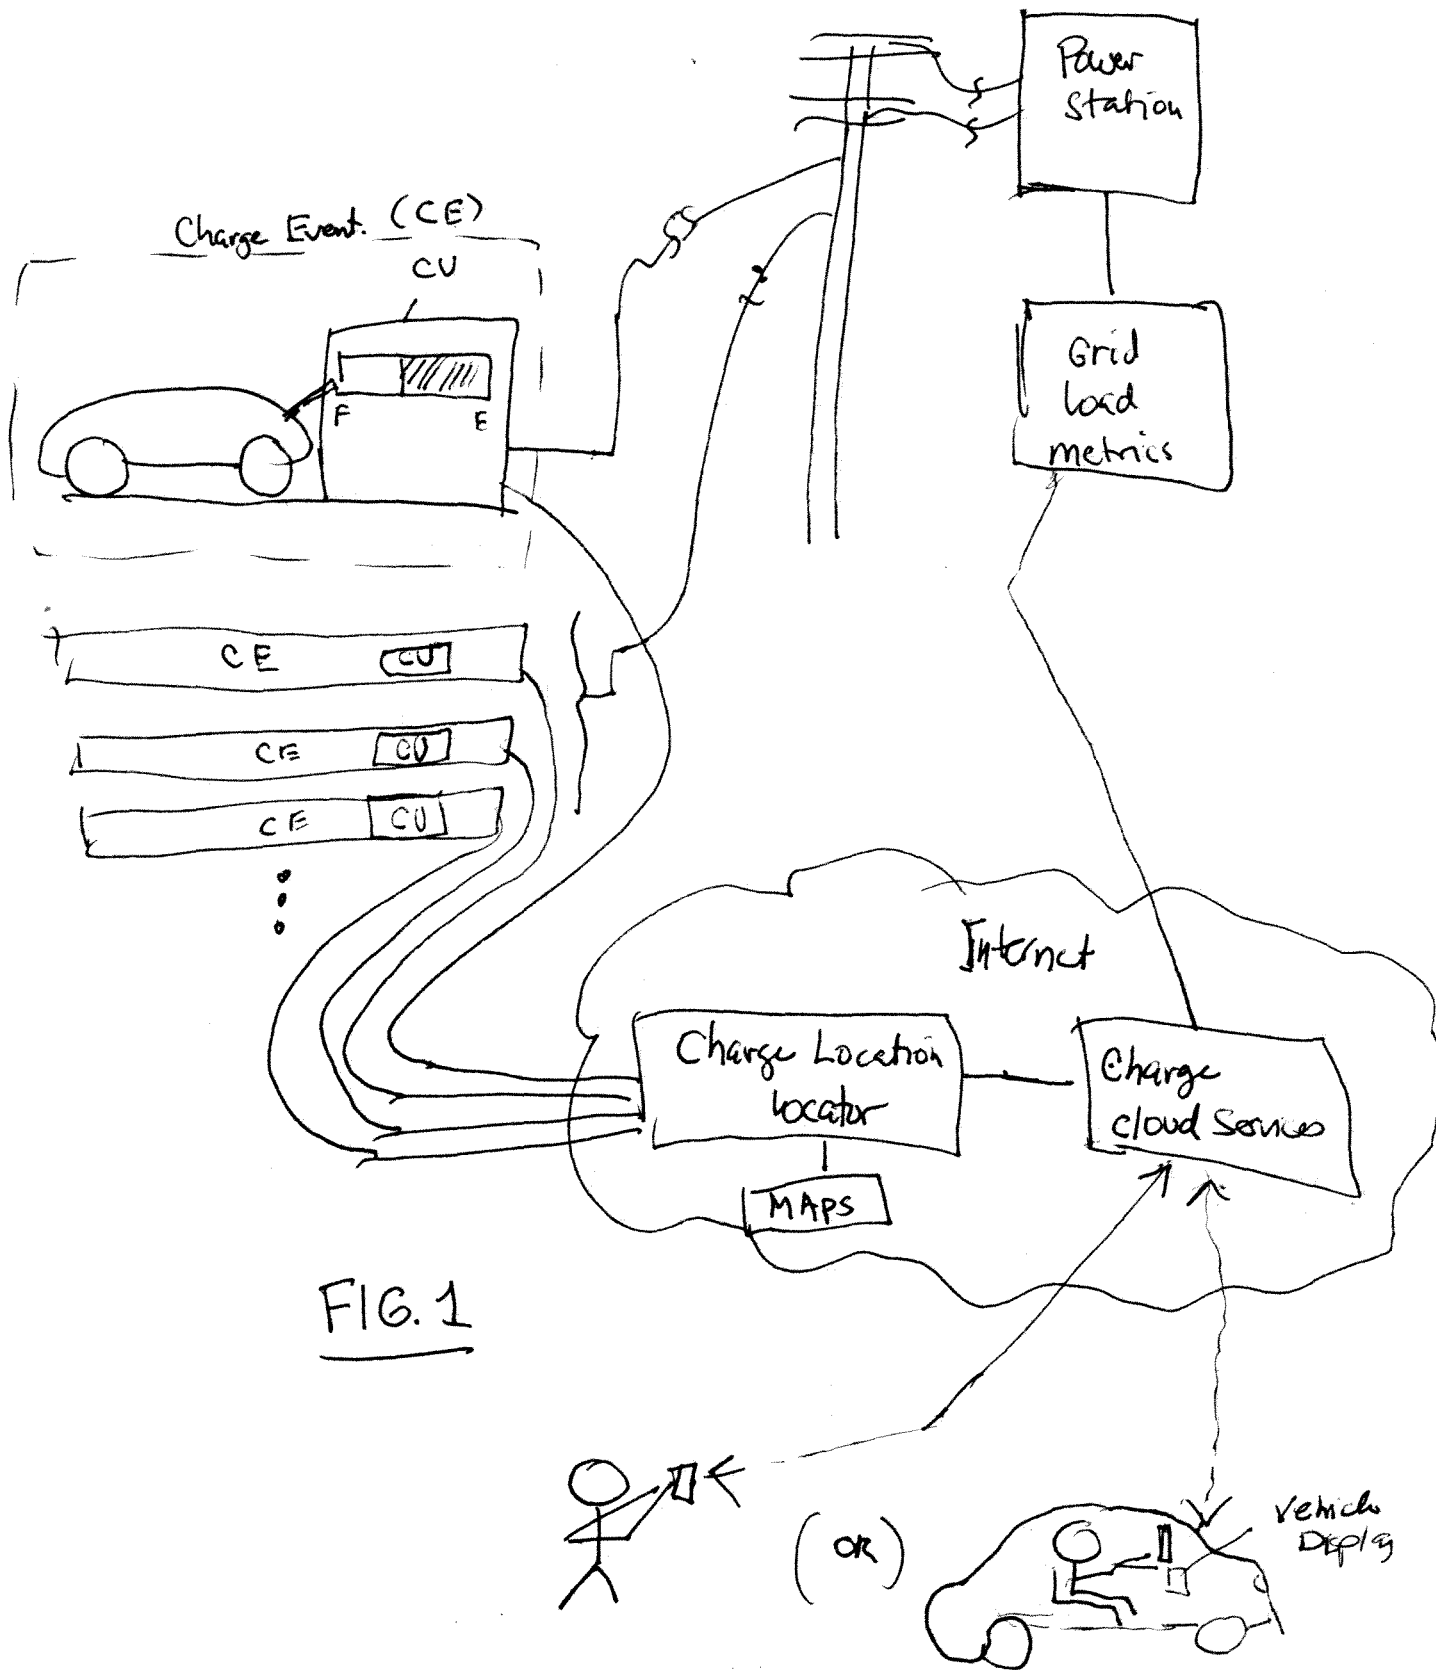 Power
Station
Charge Event. (CE)
CU
Grid
Load
metrics
F E
CE CU
CE CU
CE CU
Internet
Charge Location
Locator
Charge
Cloud Services
MAPS
FIG. 1
(OR)
Vehicle
Display